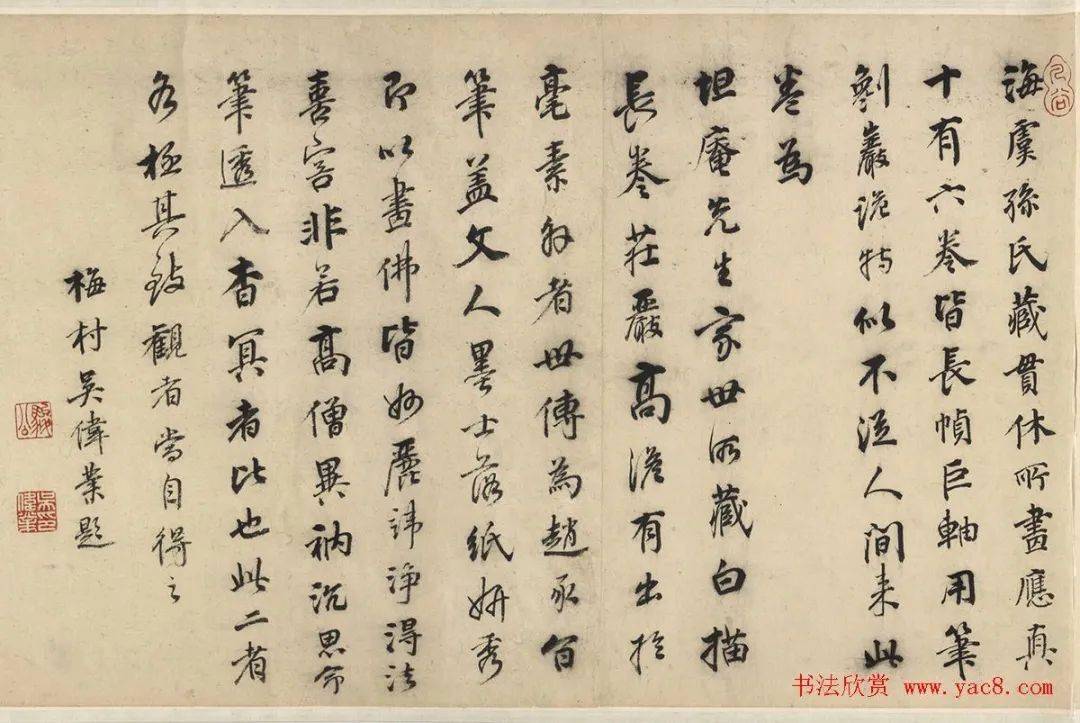 海虞孫氏藏貫休所畫應真
十有六卷皆長幀巨軸用筆
劖巖詭特似不從人間来此
卷為
坦庵先生家世所藏白描
長卷莊嚴高澹有出於
毫素外者世傳為趙承旨
筆蓋文人墨士落紙妍秀
即以畫佛皆妙麗諱淨得法
喜容非若高僧異衲沉思命
筆透入杳冥者比也此二者
各極其致觀者當自得之
梅村吳偉業題
吳偉業印
书法欣赏 www.yac8.com